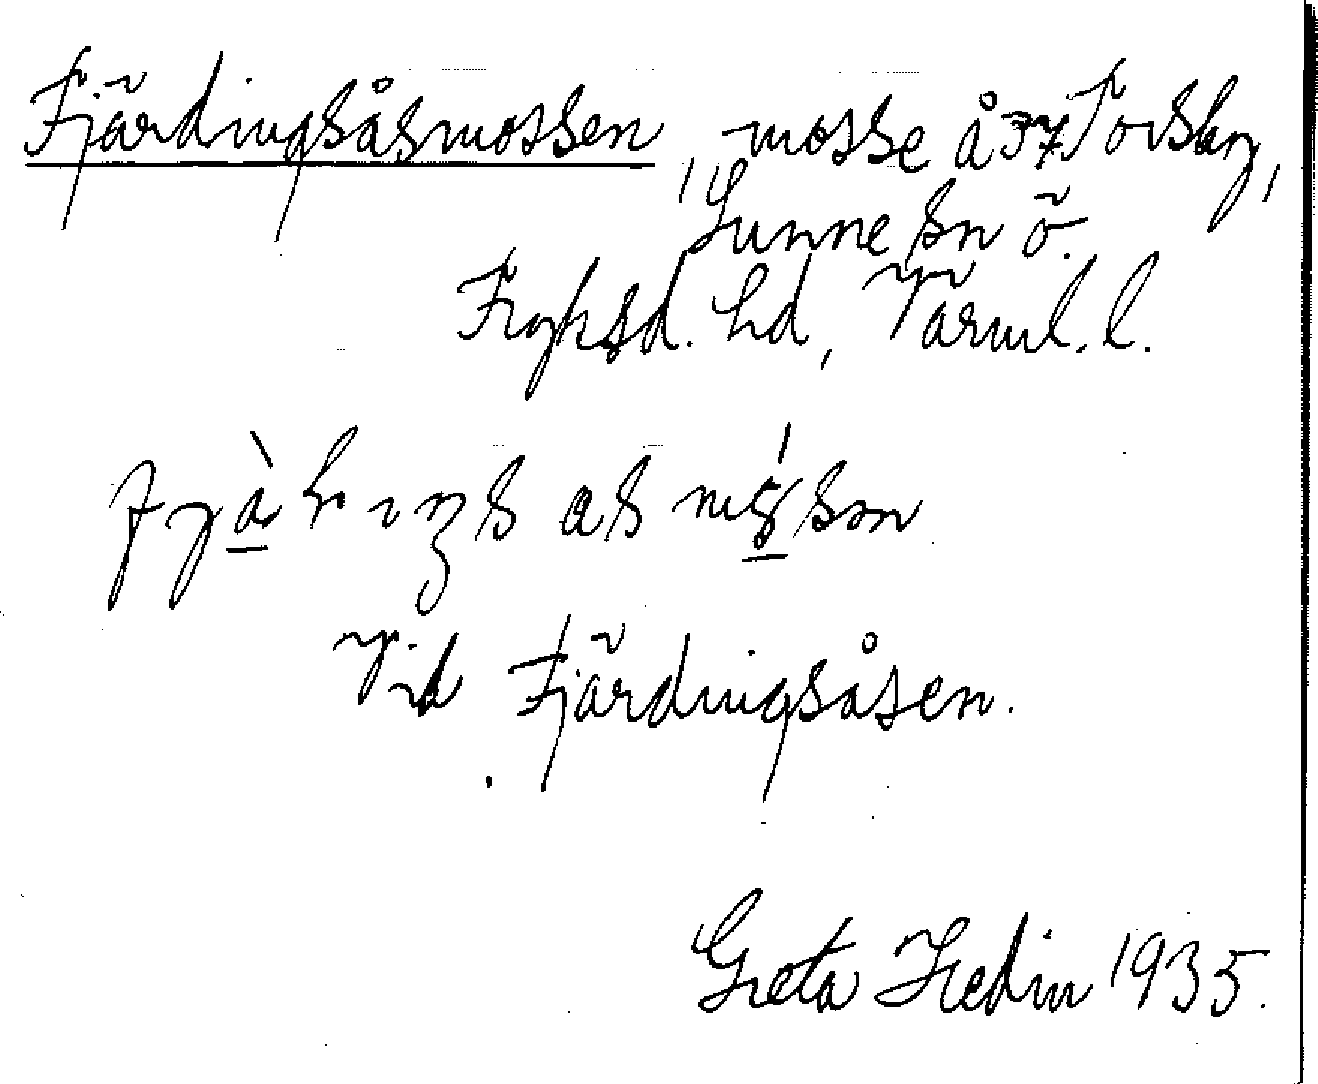 Fjärdingsåsmossen, mosse å 37 Torsby,
Sunne sn ö.
Fryksd. hd, Värml. l.
Vid Fjärdingsåsen.
Greta Hedin 1935.